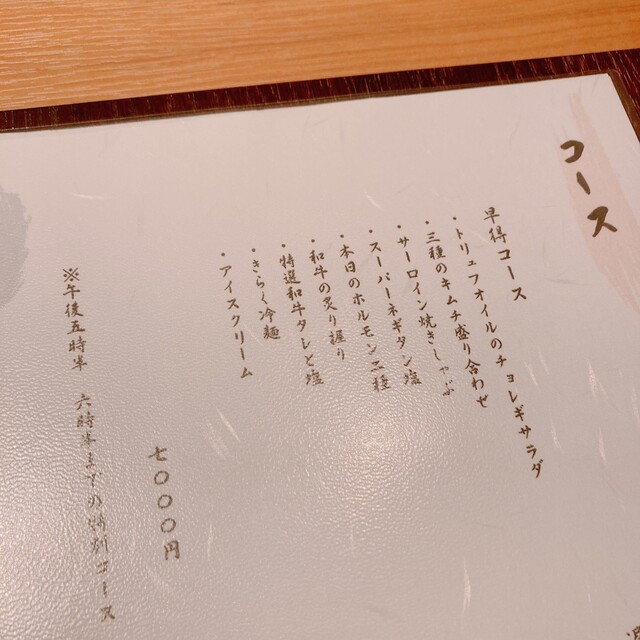 コース
早得コース
・トリュフオイルのチョレギサラダ
・三種のキムチ盛り合わせ
・サーロイン焼きしゃぶ
・スーパーネギタン塩
・本日のホルモン二種
・和牛の炙り握り
・特選和牛タレと塩
・きらく冷麺
・アイスクリーム
七〇〇〇円
※午後五時半 六時半までの特別コース